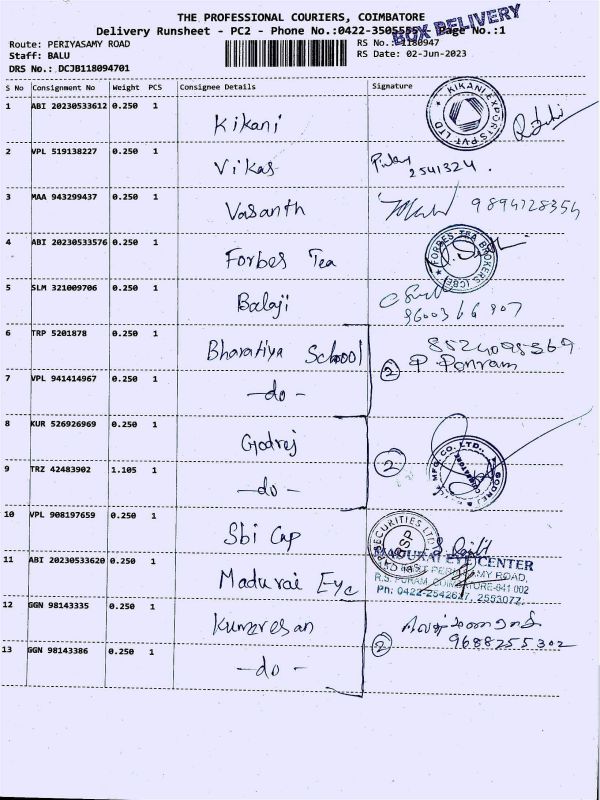 THE PROFESSIONAL COURIERS, COIMBATORE
Delivery Runsheet - PC2 - Phone No.:0422-3505555 Page No.:1
BOX DELIVERY
Route: PERIYASAMY ROAD RS No.: 1180947
Staff: BALU RS Date: 02-Jun-2023
DRS No.: DCJB118094701
S No Consignment No Weight PCS Consignee Details Signature
1 ABI 20230533612 0.250 1 Kikani KIKANI EXPORTS PVT LTD
2 VPL 519138227 0.250 1 Vikas 2541324.
3 MAA 943299437 0.250 1 Vasanth 9894728354
4 ABI 20230533576 0.250 1 Forbes Tea FORBES TEA BROKERS (CBE)
5 SLM 321009706 0.250 1 Balaji 9600366907
6 TRP 5201878 0.250 1 Bharatiya School 8524095369
P Ponram
7 VPL 941414967 0.250 1 -do- 2
8 KUR 526926969 0.250 1 Godrej
9 TRZ 42483902 1.105 1 -do- 2 MFG. CO. LTD., GODREJ
10 VPL 908197659 0.250 1 Sbi Cap CAP SECURITIES LTD
11 ABI 20230533620 0.250 1 Madurai Eye MADURAI EYE CENTER
R.S. PURAM, COIMBATORE-641 002
Ph: 0422-2542627, 2553077
12 GGN 98143335 0.250 1 Kumaresan
9688255302
13 GGN 98143386 0.250 1 -do- 2